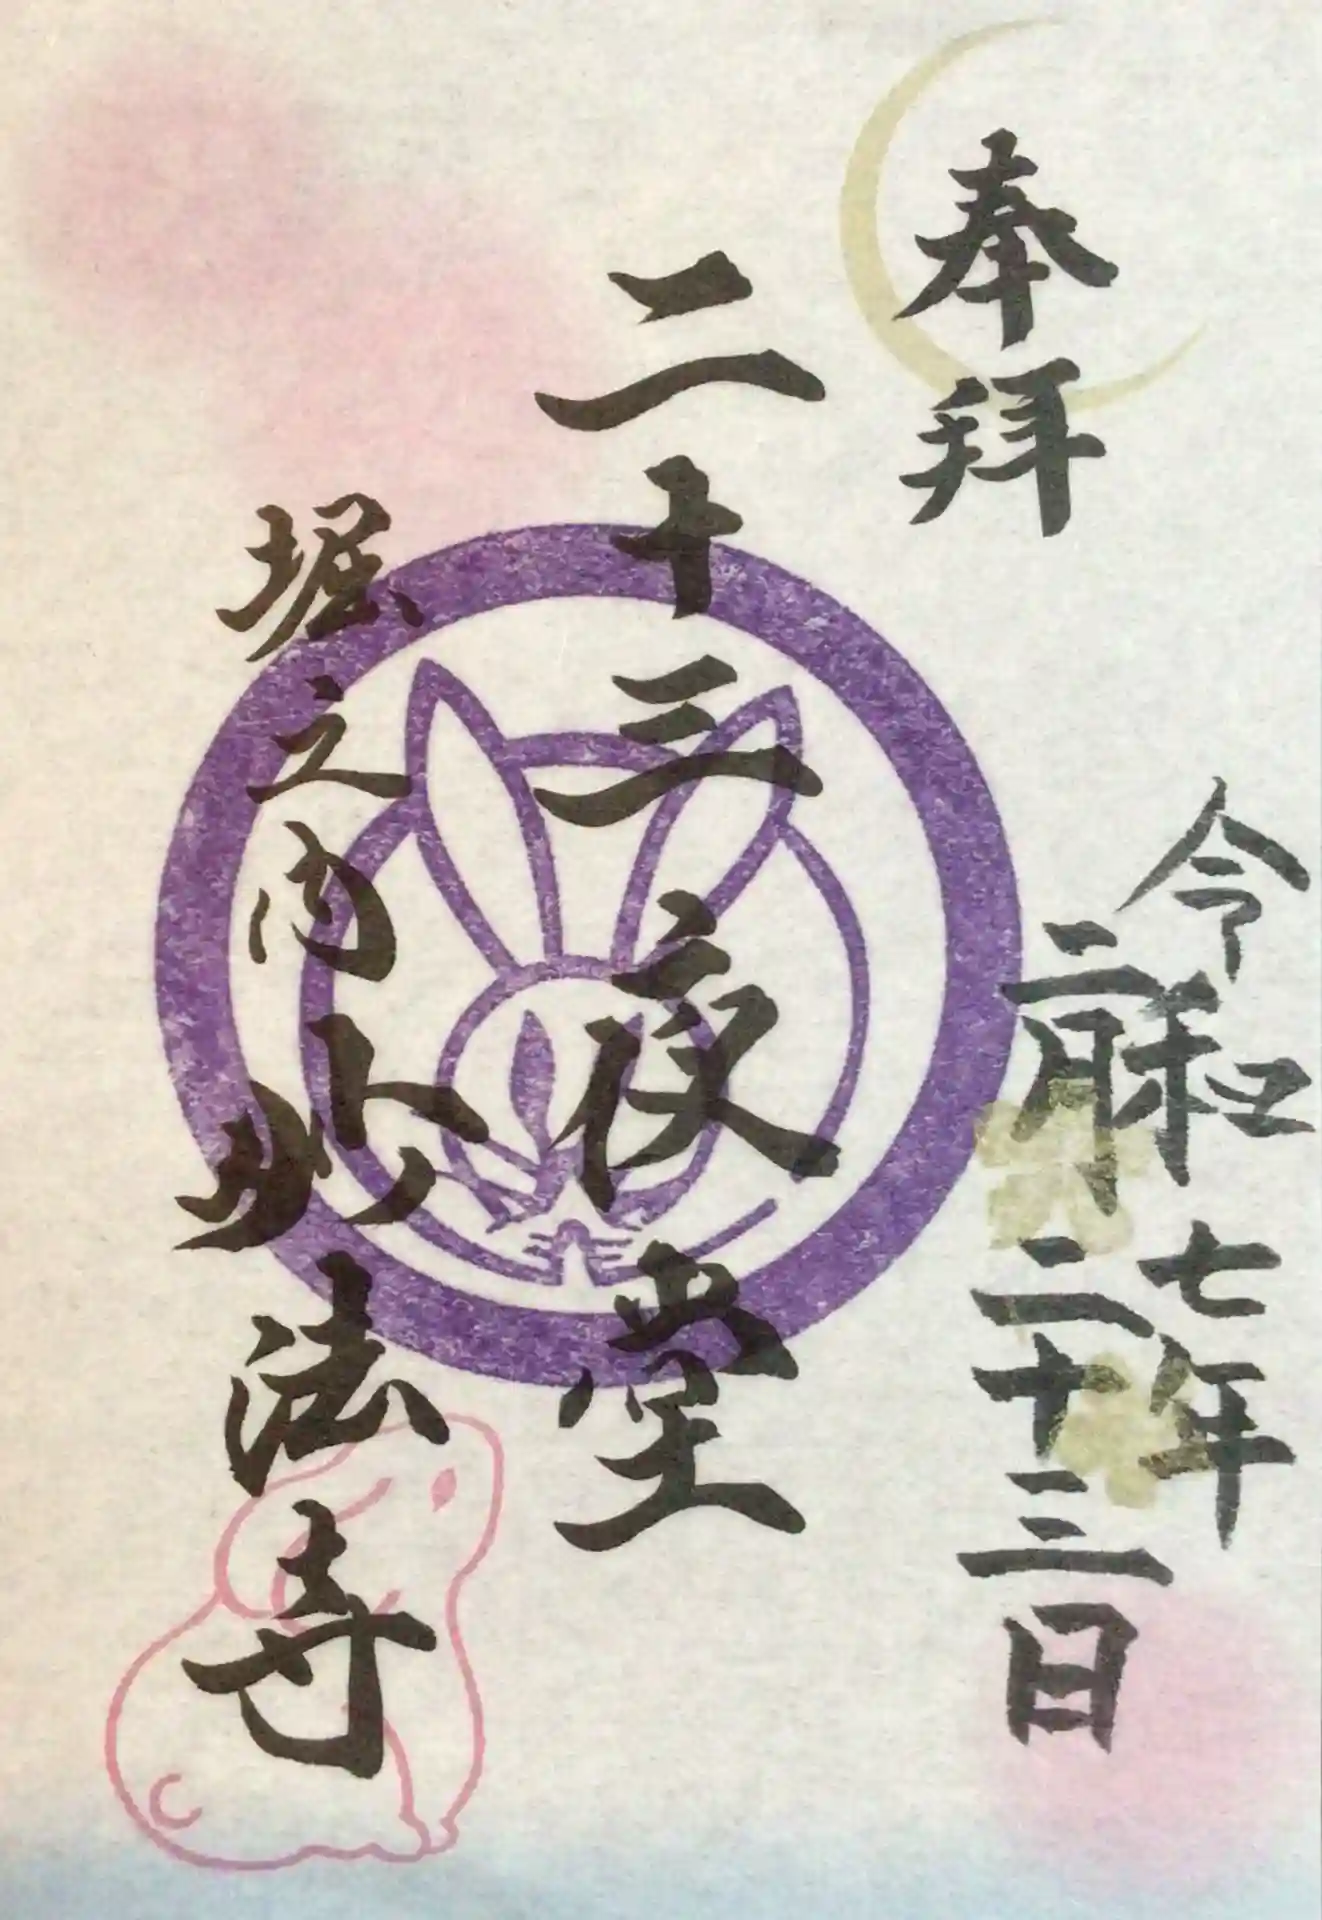 奉拝
令和七年
二月二十三日
二十三夜堂
堀之内妙法寺